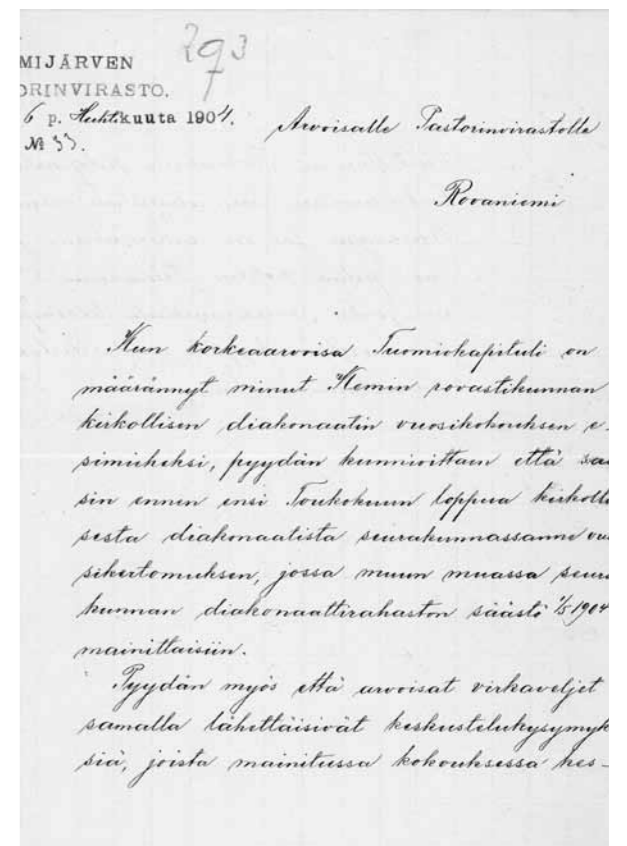 293
MIJÄRVEN
ORINVIRASTO.
6 p. Huhtikuuta 1904.
№ 33.
Arvoisalle Pastorinvirastolle
Rovaniemi
Kun korkeaarvoisa Tuomiokapituli on
määrännyt minut Kemin rovastikunnan
kirkollisen diakonaatin vuosikokouksen e-
simieheksi, pyydän kunnioittaen että saa
sin ennen ensi Toukokuun loppua kirkolli
sesta diakonaatista seurakunnassanne vuo
sikertomuksen, jossa muun muassa seura
kunnan diakonaattirahaston säästö 1/5 1904
mainittaisiin.
Pyydän myös että arvoisat virkaveljet
samalla lähettäisivät keskustelukysymyk
siä, joista mainitussa kokouksessa kes-